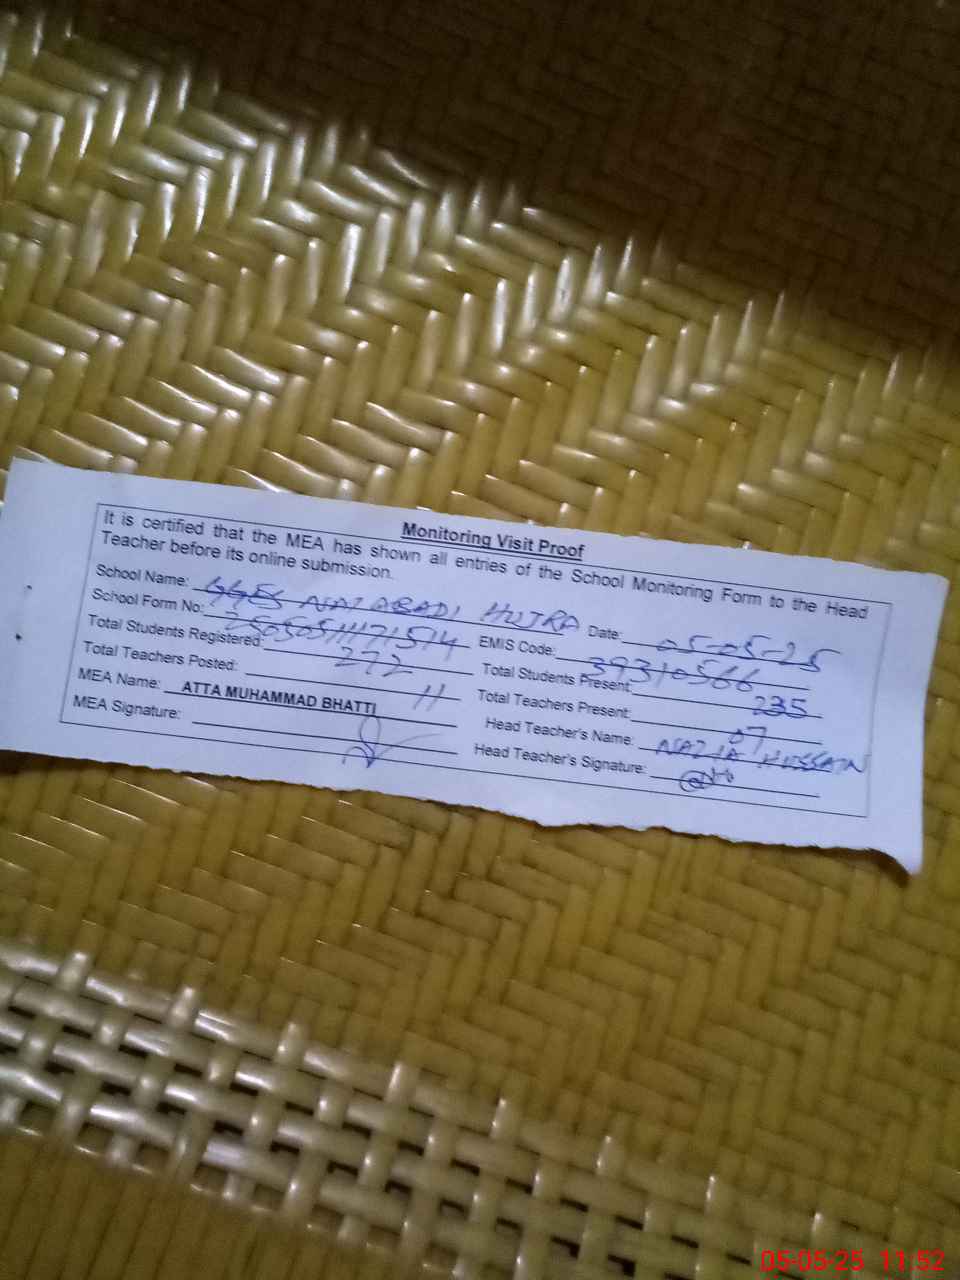 Monitoring Visit Proof
It is certified that the MEA has shown all entries of the School Monitoring Form to the Head
Teacher before its online submission.
School Name: GGES NAZABADI HUJRA Date: 05-05-25
School Form No: EMIS Code: 39310566
Total Students Registered: 272 Total Students Present: 235
Total Teachers Posted: 11 Total Teachers Present: 07
MEA Name: ATTA MUHAMMAD BHATTI Head Teacher's Name: NAZIA HUSSAIN
MEA Signature: Head Teacher's Signature:
05-05-25 11:52